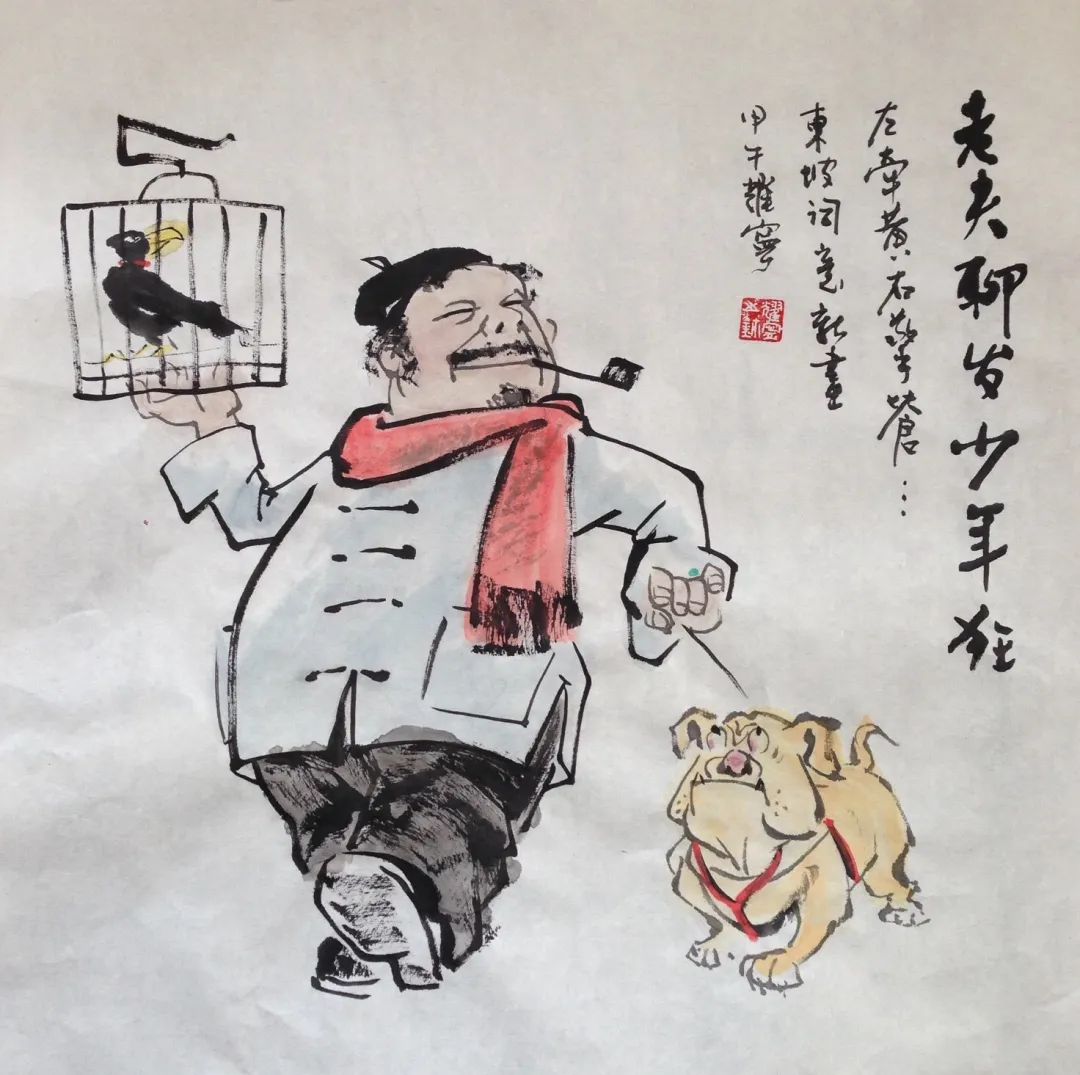 老夫聊发少年狂
左牽黄右擎蒼…
東坡词意新畫
甲午耀寧